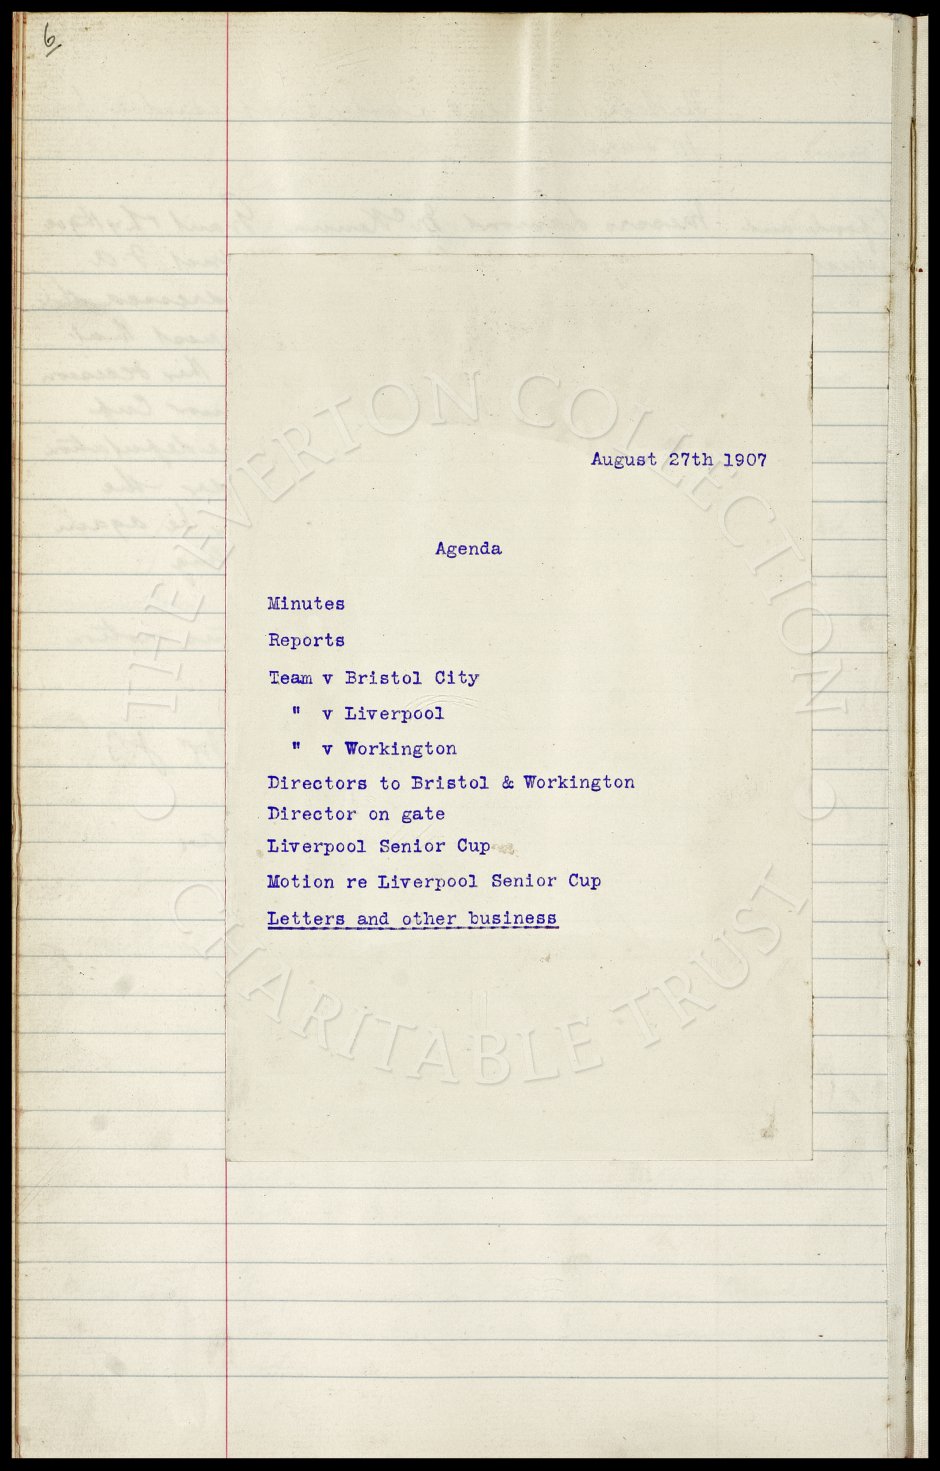 6
August 27th 1907
Agenda
Minutes
Reports
Team v Bristol City
" v Liverpool
" v Workington
Directors to Bristol & Workington
Director on gate
Liverpool Senior Cup
Motion re Liverpool Senior Cup
Letters and other business
THE EVERTON COLLECTION
CHARITABLE TRUST